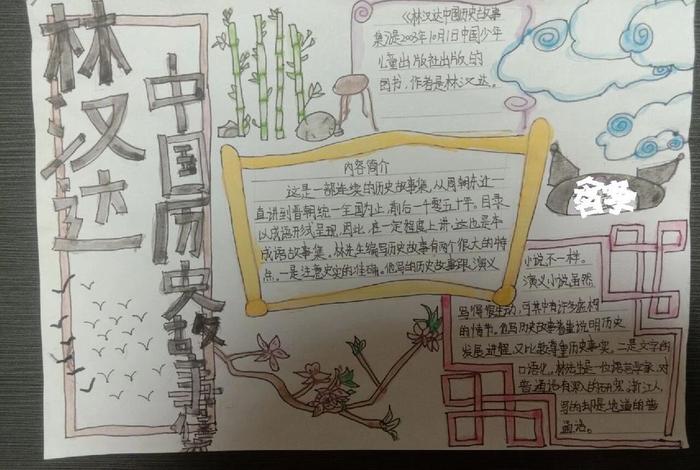 林汉达
中国历史故事集
《林汉达中国历史故事
集》是2003年10月1日中国少年
儿童出版社出版的
图书,作者是林汉达。
内容简介
这是一部连续的历史故事集,从周朝东迁一
直讲到晋朝统一全国为止,前后一千零五十年。目录
以成语形式呈现,因此,在一定程度上讲,这也是本
成语故事集。林先生编写历史故事有两个很大的特
点。一是注意史实的准确。他写的历史故事跟演义
小说不一样。
演义小说虽然
写得很生动,可其中有许多虚构
的情节。他写历史故事着重说明历史
发展进程,又比较尊重历史事实。二是文字的
口语化。林先生是一位语言学家,对
普通话有深入的研究,浙江人,
写的却是地道的普
通话。